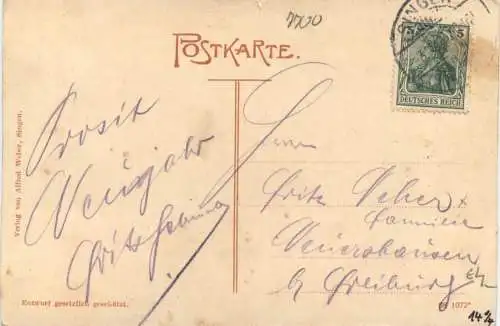 7700
POSTKARTE.
SINGEN
5
DEUTSCHES REICH
Verlag von Alfred Weber, Singen.
Prosit
Neujahr
Fritz
Herrn
Fritz Weber
Familie
Neuershausen
by Freiburg
Entwurf gesetzlich geschützt.
1072
14%